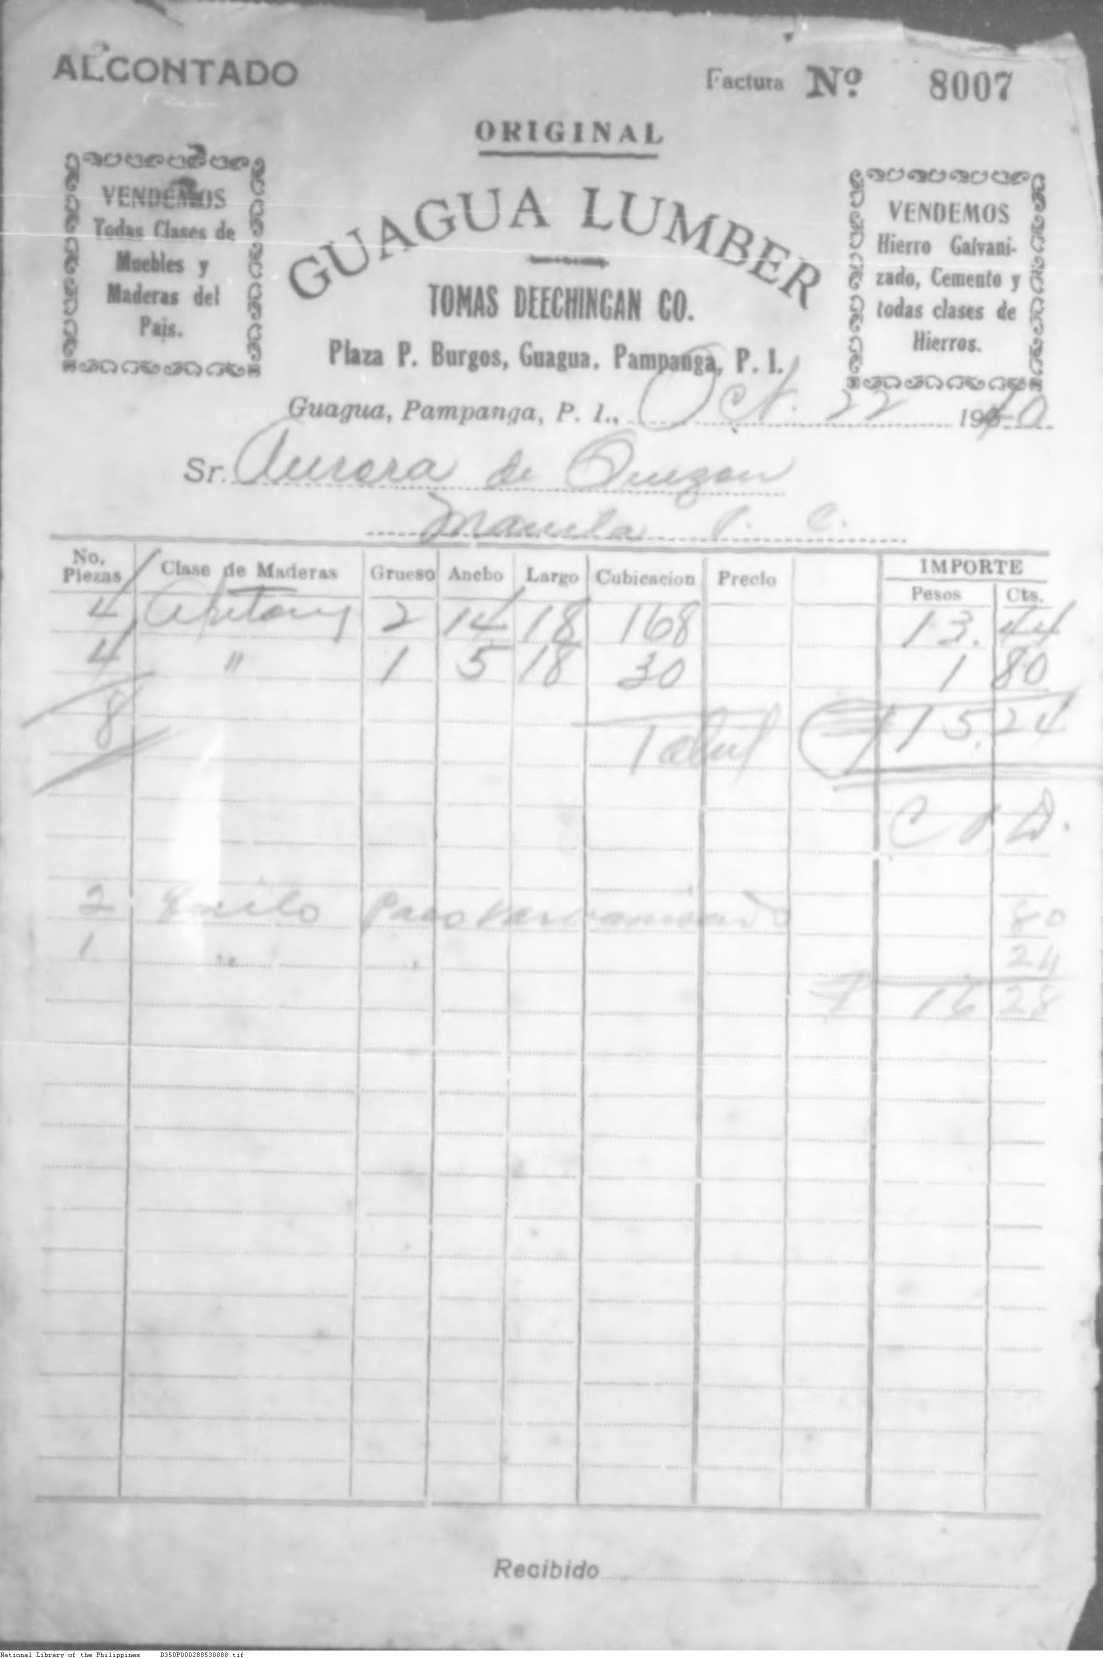 ALCONTADO
Factura Nº 8007
ORIGINAL
VENDEMOS
Todas Clases de
Muebles y
Maderas del
Pais.
GUAGUA LUMBER
TOMAS DEECHINGAN CO.
Plaza P. Burgos, Guagua, Pampanga, P. I.
VENDEMOS
Hierro Galvani-
zado, Cemento y
todas clases de
Hierros.
Guagua, Pampanga, P. I., Oct. 22 1940
Sr. Aurora de Quezon
Manila
No. Piezas Clase de Maderas Grueso Ancho Largo Cubicacion Precio IMPORTE Pesos Cts.
4 Apitong 2 14 18 168 13. 44
4 " 1 5 18 30 1 80
8 Total ₱ 15. 24
2 Kilo 80
1 " " 24
₱ 16 28
Recibido
National Library of the Philippines